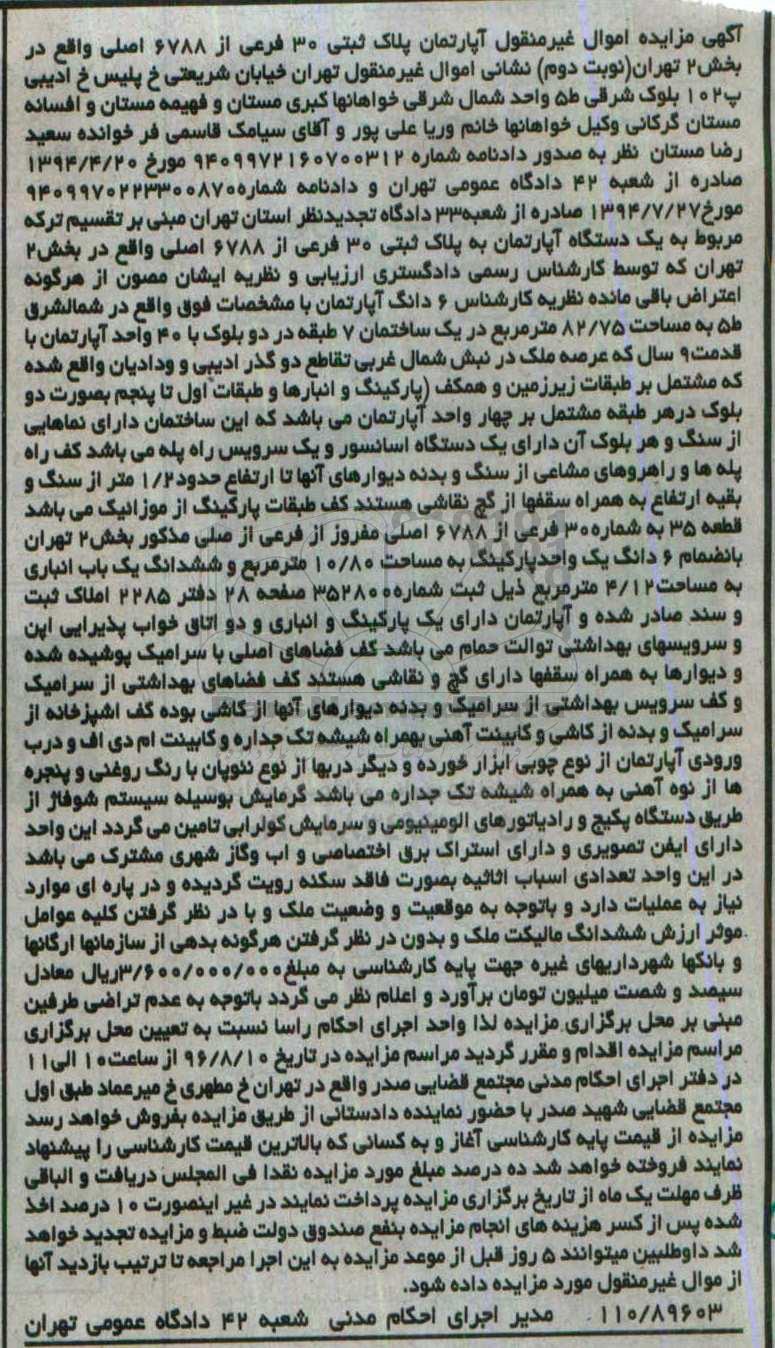 آگهی مزایده اموال غیرمنقول آپارتمان پلاک ثبتی ۳۰ فرعی از ۶۷۸۸ اصلی واقع در
بخش۲ تهران(نوبت دوم) نشانی اموال غیرمنقول تهران خیابان شریعتی خ پلیس خ ادیبی
پ۱۰۲ بلوک شرقی ط۵ واحد شمال شرقی خواهانها کبری مستان و فهیمه مستان و افسانه
مستان گرکانی وکیل خواهانها خانم وریا علی پور و آقای سیامک قاسمی فر خوانده سعید
رضا مستان نظر به صدور دادنامه شماره ۹۴۰۹۹۷۲۱۶۰۷۰۰۳۱۲ مورخ ۱۳۹۴/۴/۲۰
صادره از شعبه ۴۲ دادگاه عمومی تهران و دادنامه شماره۹۴۰۹۹۷۰۲۲۳۳۰۰۸۷۰
مورخ۱۳۹۴/۷/۲۷ صادره از شعبه۳۳ دادگاه تجدیدنظر استان تهران مبنی بر تقسیم ترکه
مربوط به یک دستگاه آپارتمان به پلاک ثبتی ۳۰ فرعی از ۶۷۸۸ اصلی واقع در بخش۲
تهران که توسط کارشناس رسمی دادگستری ارزیابی و نظریه ایشان مصون از هرگونه
اعتراض باقی مانده نظریه کارشناس ۶ دانگ آپارتمان با مشخصات فوق واقع در شمالشرق
ط۵ به مساحت ۸۲/۷۵ مترمربع در یک ساختمان ۷ طبقه در دو بلوک با ۴۰ واحد آپارتمان با
قدمت۹ سال که عرصه ملک در نبش شمال غربی تقاطع دو گذر ادیبی و ودادیان واقع شده
که مشتمل بر طبقات زیرزمین و همکف (پارکینگ و انبارها و طبقات اول تا پنجم بصورت دو
بلوک درهر طبقه مشتمل بر چهار واحد آپارتمان می باشد که این ساختمان دارای نماهایی
از سنگ و هر بلوک آن دارای یک دستگاه اسانسور و یک سرویس راه پله می باشد کف راه
پله ها و راهروهای مشاعی از سنگ و بدنه دیوارهای آنها تا ارتفاع حدود۱/۲ متر از سنگ و
بقیه ارتفاع به همراه سقفها از گچ نقاشی هستند کف طبقات پارکینگ از موزائیک می باشد
قطعه ۳۵ به شماره۳۰ فرعی از ۶۷۸۸ اصلی مفروز از فرعی از صلی مذکور بخش۲ تهران
بانضمام ۶ دانگ یک واحدپارکینگ به مساحت ۱۰/۸۰ مترمربع و ششدانگ یک باب انباری
به مساحت۴/۱۲ مترمربع ذیل ثبت شماره۳۵۲۸۰۰ صفحه ۲۸ دفتر ۲۲۸۵ املاک ثبت
و سند صادر شده و آپارتمان دارای یک پارکینگ و انباری و دو اتاق خواب پذیرایی اپن
و سرویسهای بهداشتی توالت حمام می باشد کف فضاهای اصلی با سرامیک پوشیده شده
و دیوارها به همراه سقفها دارای گچ و نقاشی هستند کف فضاهای بهداشتی از سرامیک
و کف سرویس بهداشتی از سرامیک و بدنه دیوارهای آنها از کاشی بوده گف اشپزخانه از
سرامیک و بدنه از کاشی و کابینت آهنی بهمراه شیشه تک جداره و کابینت ام دی اف و درب
ورودی آپارتمان از نوع چوبی ابزار خورده و دیگر دربها از نوع نئوپان با رنگ روغنی و پنجره
ها از نوه آهنی به همراه شیشه تک جداره می باشد گرمایش بوسیله سیستم شوفاژ از
طریق دستگاه پکیج و رادیاتورهای الومینیومی و سرمایش کولرابی تامین می گردد این واحد
دارای ایفن تصویری و دارای استراک برق اختصاصی و اب وگاز شهری مشترک می باشد
در این واحد تعدادی اسباب اثاثیه بصورت فاقد سکنه رویت گردیده و در پاره ای موارد
نیاز به عملیات دارد و باتوجه به موقعیت و وضعیت ملک و با در نظر گرفتن کلیه عوامل
موثر ارزش ششدانگ مالیکت ملک و بدون در نظر گرفتن هرگونه بدهی از سازمانها ارگانها
و بانکها شهرداریهای غیره جهت پایه کارشناسی به مبلغ۳/۶۰۰/۰۰۰/۰۰۰ریال معادل
سیصد و شصت میلیون تومان برآورد و اعلام نظر می گردد باتوجه به عدم تراضی طرفین
مبنی بر محل برگزاری مزایده لذا واحد اجرای احکام راسا نسبت به تعیین محل برگزاری
مراسم مزایده اقدام و مقرر گردید مراسم مزایده در تاریخ ۹۶/۸/۱۰ از ساعت۱۰ الی۱۱
در دفتر اجرای احکام مدنی مجتمع قضایی صدر واقع در تهران خ مطهری خ میرعماد طبق اول
مجتمع قضایی شهید صدر با حضور نماینده دادستانی از طریق مزایده بفروش خواهد رسد
مزایده از قیمت پایه کارشناسی آغاز و به کسانی که بالاترین قیمت کارشناسی را پیشنهاد
نمایند فروخته خواهد شد ده درصد مبلغ مورد مزایده نقدا فی المجلس دریافت و الباقی
ظرف مهلت یک ماه از تاریخ برگزاری مزایده پرداخت نمایند در غیر اینصورت ۱۰ درصد اخذ
شده پس از کسر هزینه های انجام مزایده بنفع صندوق دولت ضبط و مزایده تجدید خواهد
شد داوطلبین میتوانند ۵ روز قبل از موعد مزایده به این اجرا مراجعه تا ترتیب بازدید آنها
از موال غیرمنقول مورد مزایده داده شود.
۱۱۰/۸۹۶۰۳ مدیر اجرای احکام مدنی شعبه ۴۲ دادگاه عمومی تهران